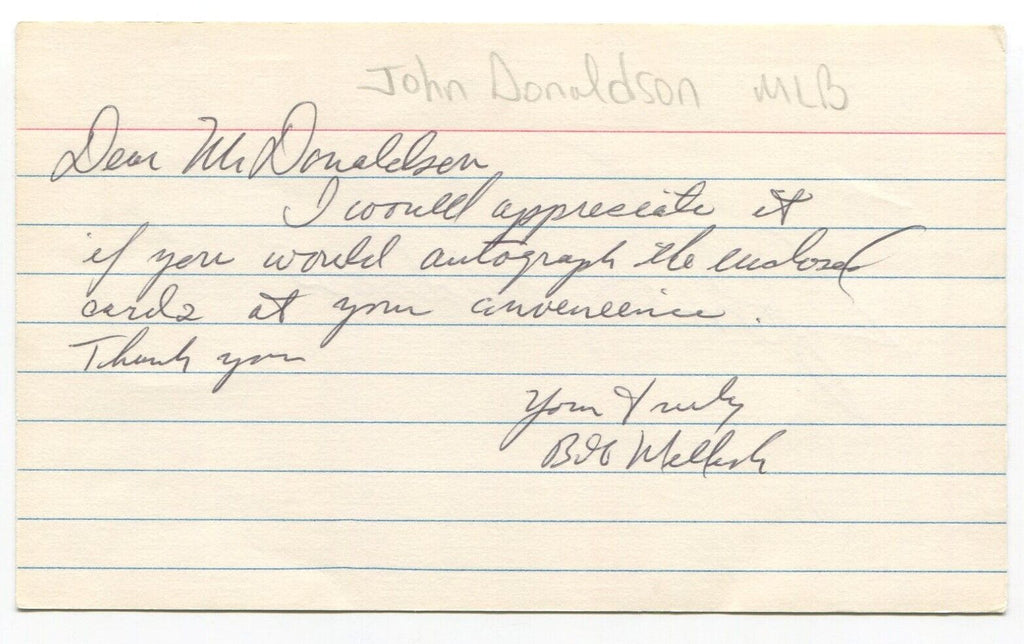 John Donaldson MLB
Dear Mr Donaldson
I would appreciate it
if you would autograph the enclosed
cards at your convenience.
Thank you
Your truly